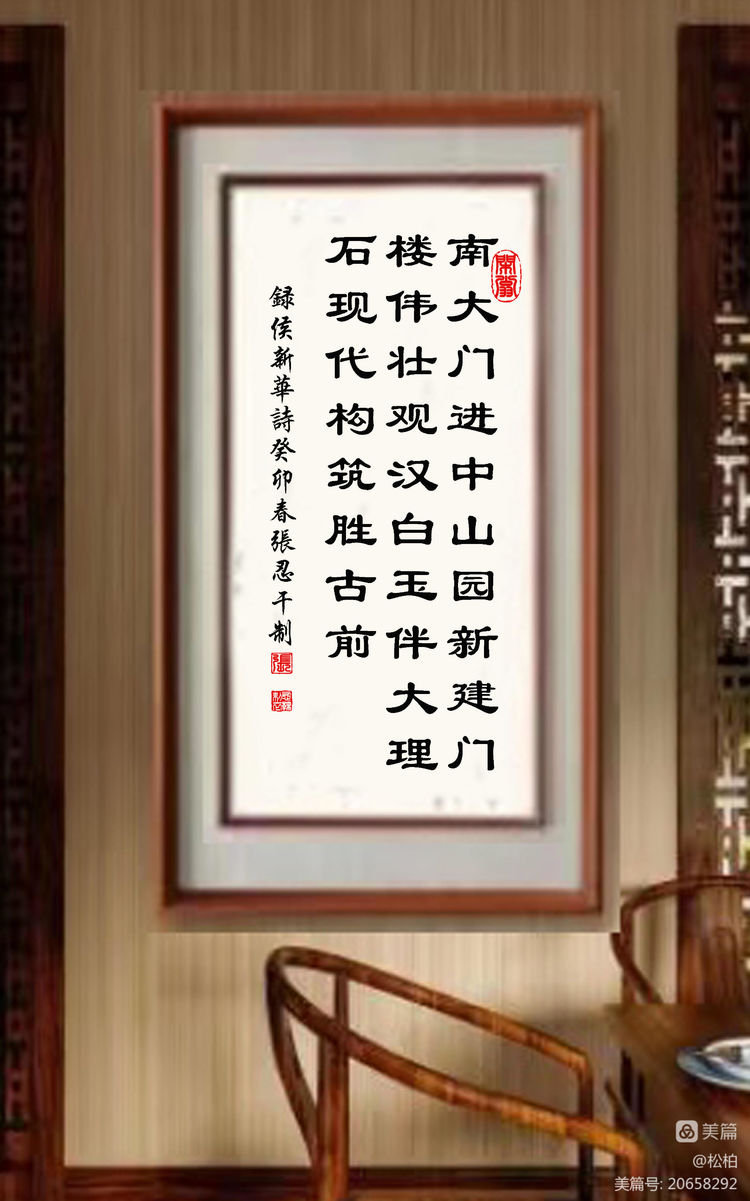 南大门进中山园新建门
楼伟壮观汉白玉伴大理
石现代构筑胜古前
録侯新華詩癸卯春張忍干制
張
美篇
@松柏
美篇号: 20658292